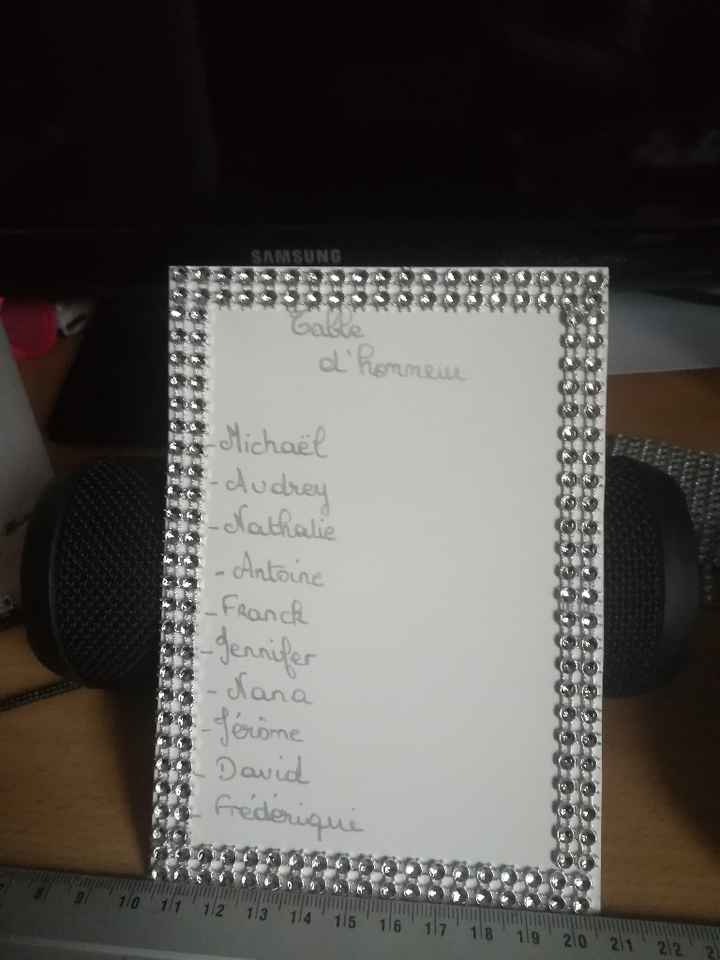 SAMSUNG
Table
d'honneur
- Michaël
- Audrey
- Nathalie
- Antoine
- Franck
- Jennifer
- Nana
- Jérôme
- David
- Frédérique
8 9 10 11 12 13 14 15 16 17 18 19 20 21 22